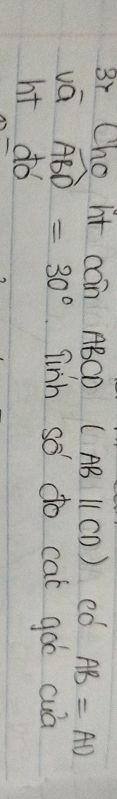 3, Cho ht cân ABCD (AB // CD) có AB = AD
và \widehat{ABD} = 30°. Tính số đo các góc của
ht đó